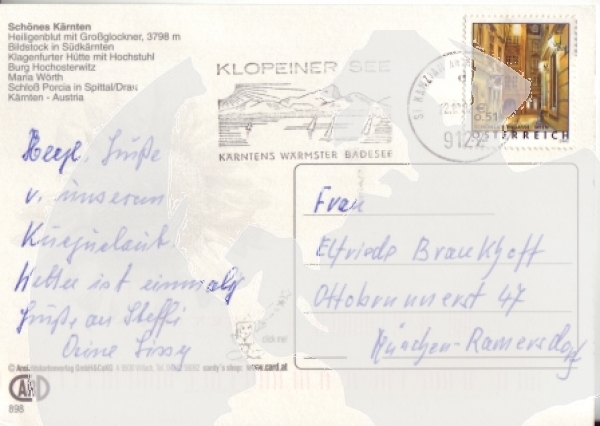 Schönes Kärnten
Heiligenblut mit Großglockner, 3798 m
Bildstock in Südkärnten
Klagenfurter Hütte mit Hochstuhl
Burg Hochosterwitz
Maria Wörth
Schloß Porcia in Spittal/Drau
Kärnten - Austria
KLOPEINER SEE
KÄRNTENS WÄRMSTER BADESEE
ST. KANZIAN
9122
0,51
ÖSTERREICH
Herzl. Grüße
v. unserem
Kurzurlaub.
Wetter ist einmalig
Grüße an Steffi
Deine Sissy
Frau
Elfriede Brauckhoff
Ottobrunnerst 47
München-Ramersdorf
click me!
cardy's shop: www.card.at
CARD
898